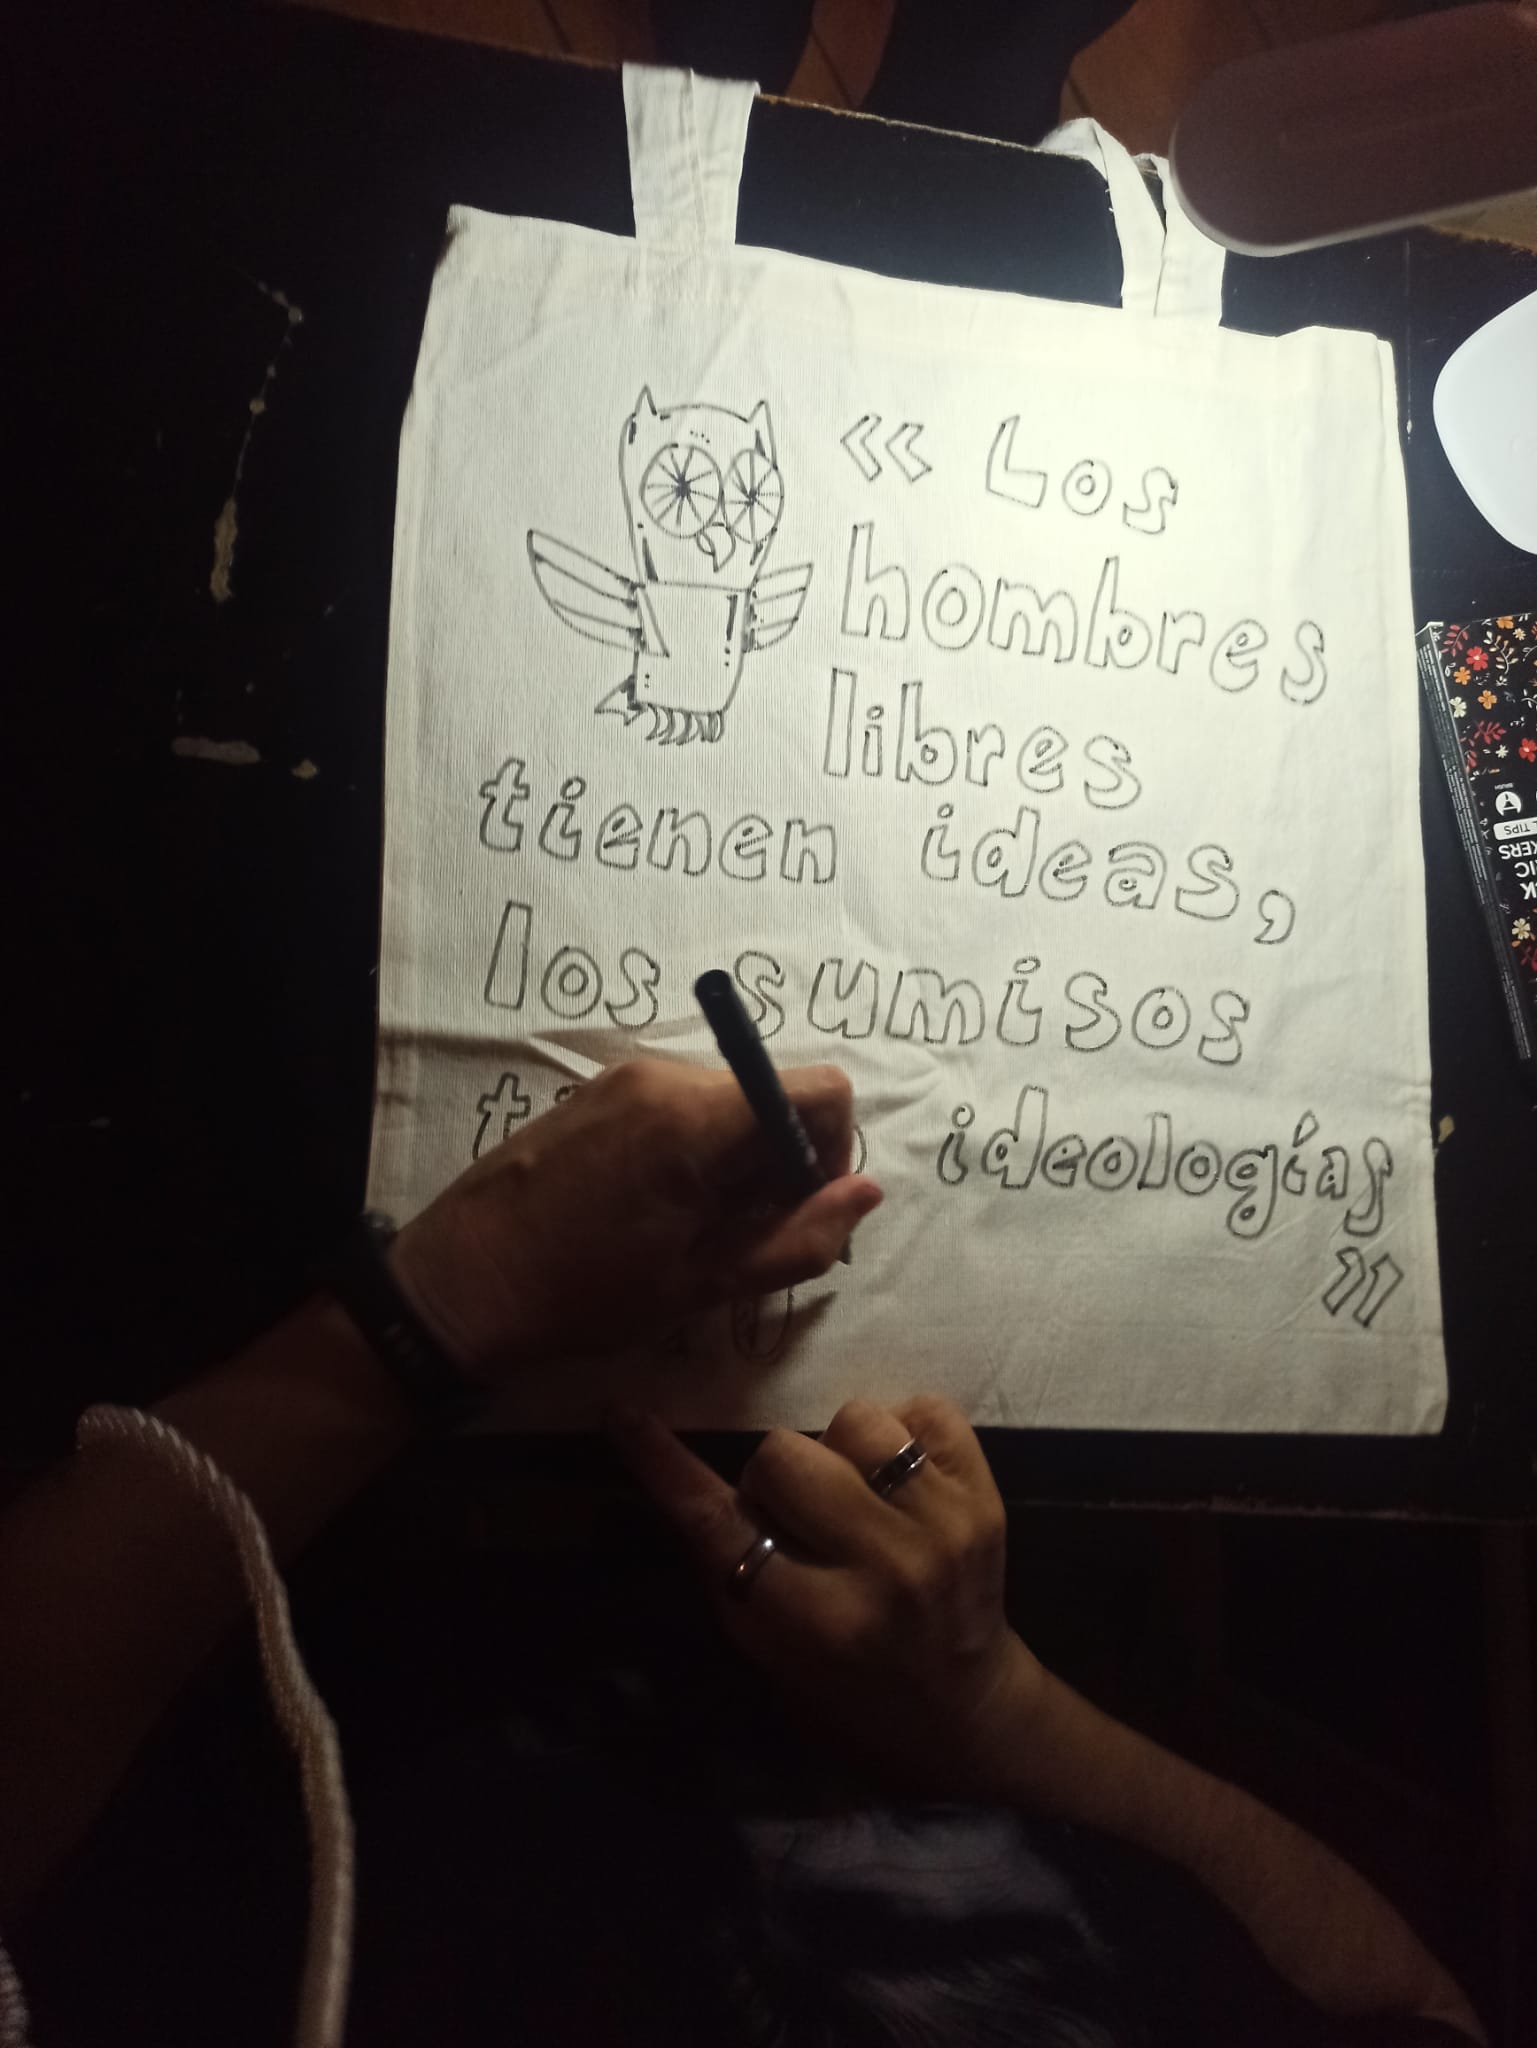 « Los
hombres
libres
tienen ideas,
los sumisos
ideologías
»
BRUSH
TIPS